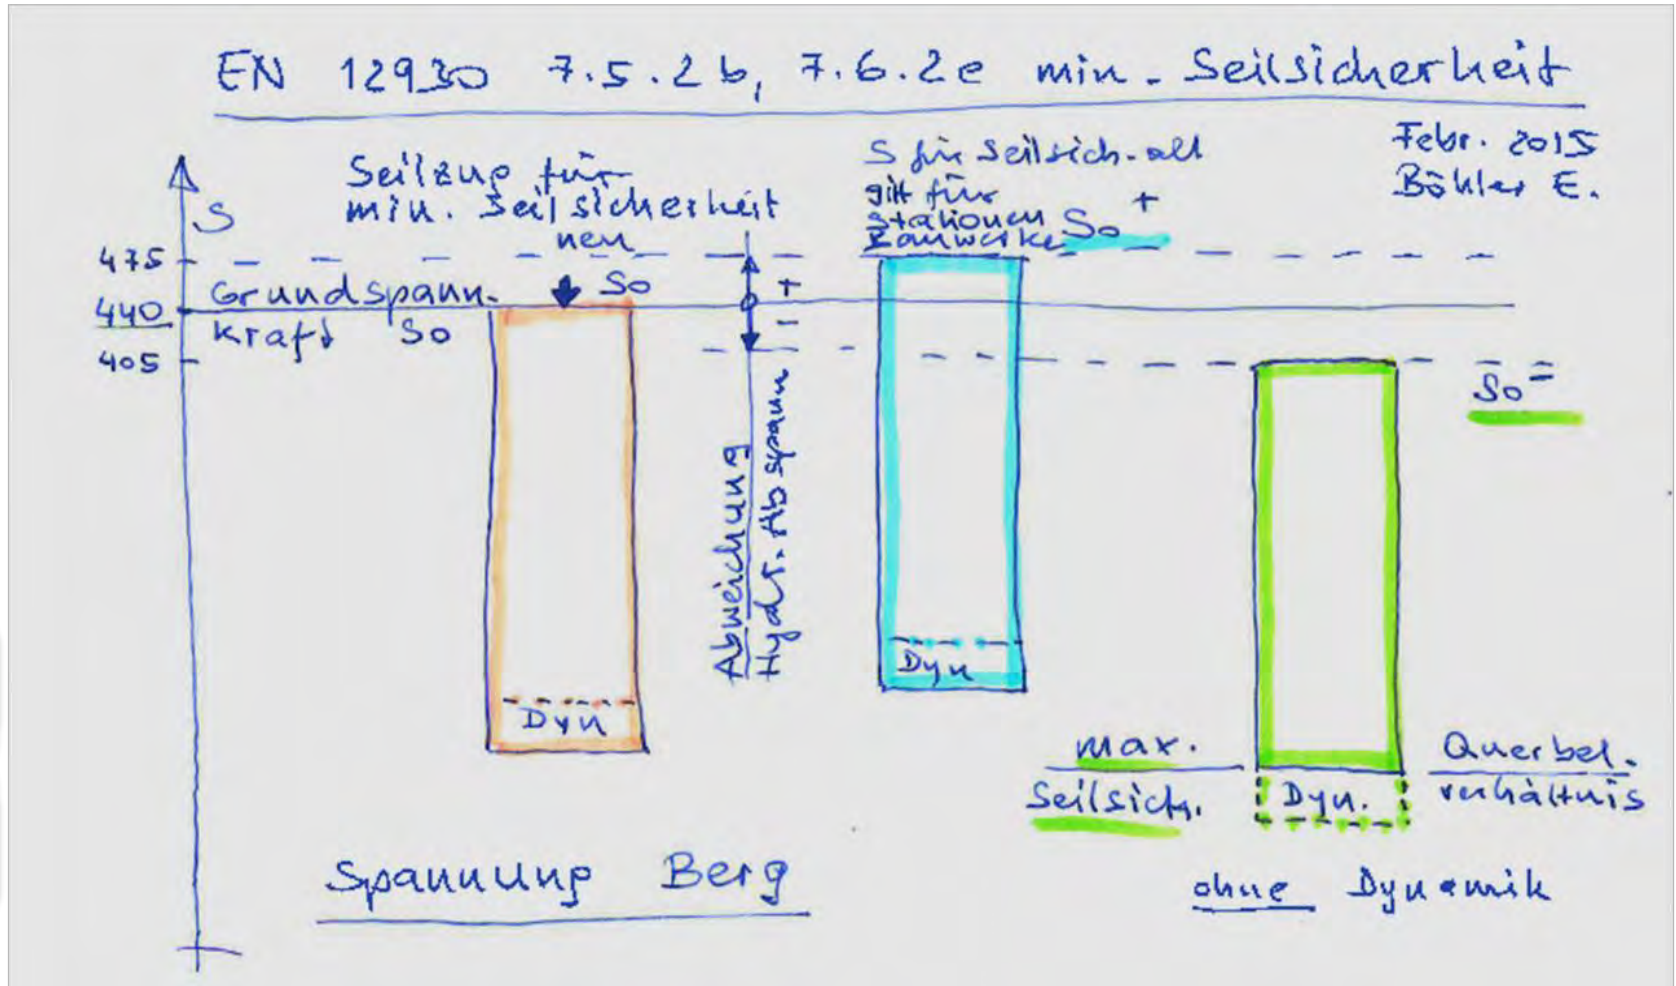 EN 12930 7.5.2b, 7.6.2e min. Seilsicherheit
Febr. 2015
Böhler E.
S
Seilzug für
min. Seilsicherheit
neu
So
S für Seilsich. alt
gilt für
Stationen
Bauwerke So+
475
440
405
Grundspann-
kraft So
+
0
-
Abweichung
Hydr. Abspann
So=
Dyn
Dyn
max.
Seilsich.
Dyn.
Querbel.
verhältnis
Spannung Berg
ohne Dynamik